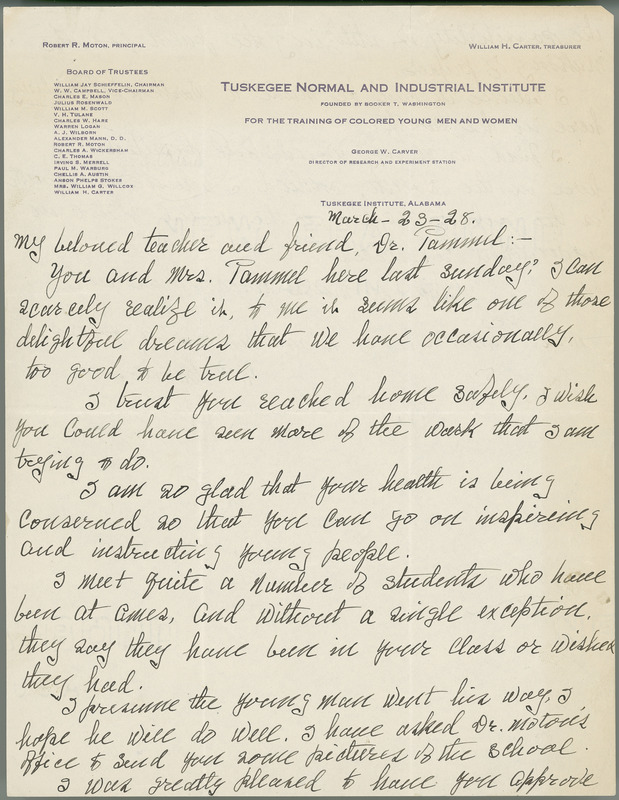 ROBERT R. MOTON, PRINCIPAL
WILLIAM H. CARTER, TREASURER
BOARD OF TRUSTEES
WILLIAM JAY SCHIEFFELIN, CHAIRMAN
W. W. CAMPBELL, VICE-CHAIRMAN
CHARLES E. MASON
JULIUS ROSENWALD
WILLIAM M. SCOTT
V. H. TULANE
CHARLES W. HARE
WARREN LOGAN
A. J. WILBORN
ALEXANDER MANN, D. D.
ROBERT R. MOTON
CHARLES A. WICKERSHAM
C. E. THOMAS
IRVING S. MERRELL
PAUL M. WARBURG
CHELLIS A. AUSTIN
ANSON PHELPS STOKES
MRS. WILLIAM G. WILLCOX
WILLIAM H. CARTER
TUSKEGEE NORMAL AND INDUSTRIAL INSTITUTE
FOUNDED BY BOOKER T. WASHINGTON
FOR THE TRAINING OF COLORED YOUNG MEN AND WOMEN
GEORGE W. CARVER
DIRECTOR OF RESEARCH AND EXPERIMENT STATION
TUSKEGEE INSTITUTE, ALABAMA
March - 23-28.
My beloved teacher and friend, Dr. Pammel:-
You and Mrs. Pammel here last Sunday? I can
scarcely realize it, to me it seems like one of those
delightful dreams that we have occasionally,
too good to be true.
I trust you reached home safely, I wish
you could have seen more of the work that I am
trying to do.
I am so glad that your health is being
conserved so that you can go on inspireing
and instructing young people.
I meet quite a number of students who have
been at Ames, and without a single exception,
they say they have been in your class or wished
they had.
I presume the young man went his way, I
hope he will do well. I have asked Dr. Moton's
office to send you some pictures of the School.
I was greatly pleased to have you approve